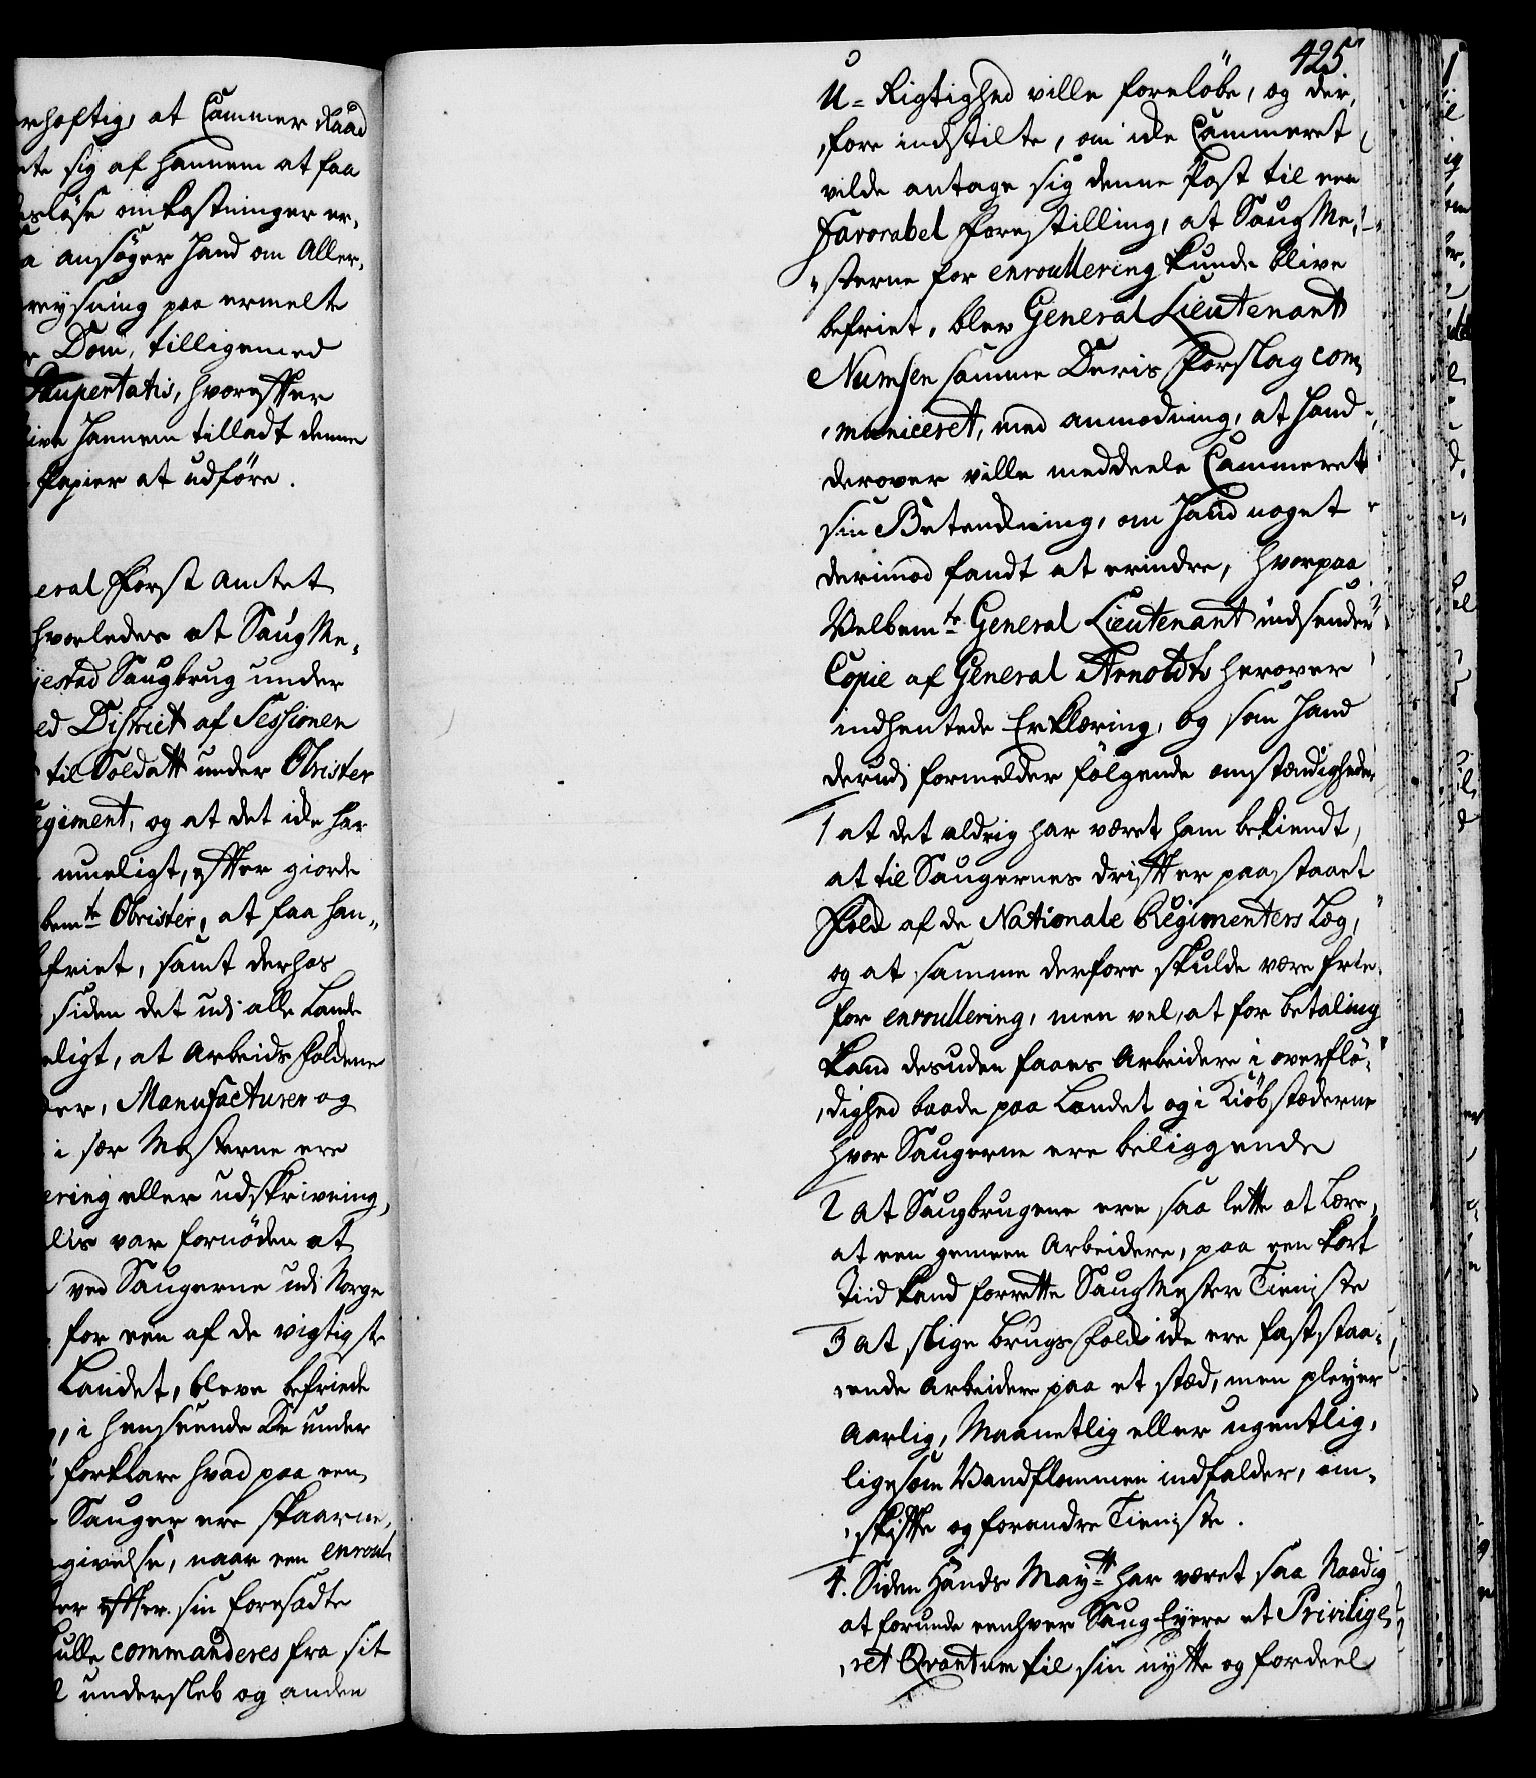 rhoftig, at Cammer Raad
te sig af hannem at faa
løse omkostninger er,
a ansøger hand om Aller,
reysning paa ermelte
Dom, tilligemed
Paupertatis, hvorefter
ive hannem tilladt denne
Papier at udføre.
eral Forst Amtet
hvorledes at Saug Me,
jestad Saugbrug under
ed District af Sessionen
til Soldatt under Obrister
egiment, og at det icke har
mueligt, efter giorde
bemte Obrister, at faa han,
friet, samt derhos
siden det udi alle Lande
ligt, at Arbeids Folckene
er, Manufacturer og
i sær Mesterne ere
ering eller udskrivning,
var fornøden at
ved Saugerne udi Norge
for een af de vigtigste
Landet, bleve befriede
, i henseende De under
forklare hvad paa een
Sauger ere skaarne,
givelse, naar een enroul
ter efter sin foresadte
ulle commanderes fra sit
undersleb og anden
425
U-Rigtighed ville foreløbe, og der,
,fore indstilte, om icke Cammeret
vilde antage sig denne Post til een
favorabel Forestilling, at Saug Me,
,sterne for enroullering kunde blive
befriet, blev General Lieutenant
Numsen samme Deris Forslag com,
,municeret, med anmodning, at Hand
derover ville meddeele Cammeret
sin Betenckning, om Hand noget
derimod fandt at erindre, hvorpaa
Velbemte General Lieutenant indsender
Copie af General Arnoldts herover
indhentede Erklæring, og som Hand
derudi formelder følgende omstændigheder
1 at det aldrig har været ham bekiendt,
at til Saugernes drifft er paastaaet
Folck af de Nationale Regimenters Læg,
og at samme derfore skulde være frie
for enroullering, men vel, at for betaling
kand desuden faaes Arbeidere i overflø,
,dighed baade paa Landet og i Kiøbstæderne
hvor Saugerne ere beliggende
2 at Saugbrugene ere saa lette at Lære,
at een gemeen Arbeidere, paa een kort
Tiid kand forrette Saug Mester Tieniste
3 at slige brugs Folck icke ere faststaa,
,ende Arbeidere paa et stæd, men pleyer
Aarlig, Maanetlig eller ugentlig,
ligesom Vandflommen indfalder, om,
,skifte og forandre Tieniste.
4. Siden Hands Maytt har været saa Naadig
at forunde eenhver Saug Eyere et Privilige,
,ret Qvantum til sin nytte og fordeel